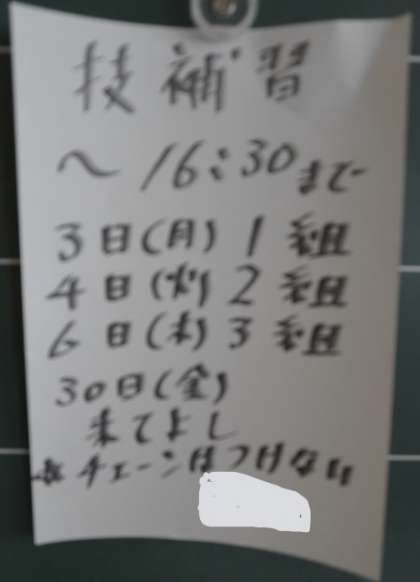 技補習
〜16:30まで
3日(月)1組
4日(火)2組
6日(木)3組
30日(金)
来てよし
※チェーンはつけない